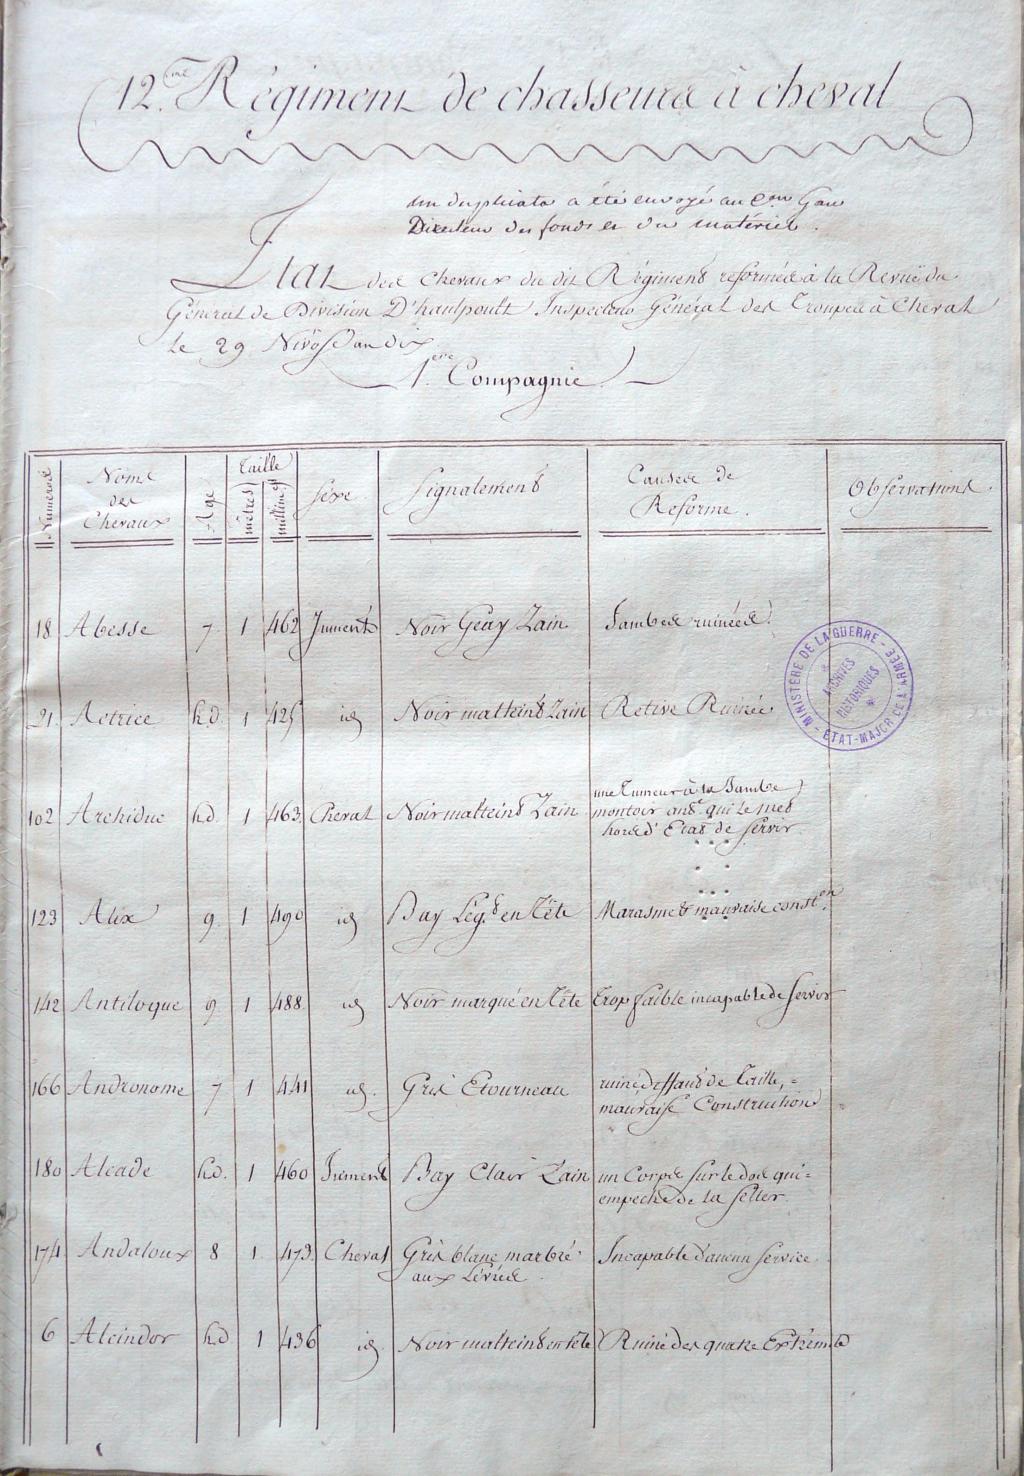 12.me Régiment de chasseurs à cheval
un duplicata a été envoyé au Cen Gau
Directeur des fonds et du matériel.
Etat des chevaux du dit Régiment reformés à la Revue du
Général de Division D'hautpoult Inspecteur Général des Troupes à Cheval
Le 29 Nivôse an dix
1.ere Compagnie
Numeros
Noms des Chevaux
Age
Taille
mètres
millim.es
séxe
Signalement
Causes de Reforme.
Observations.
18 Abesse 7. 1 462 Jument Noir Geay Zain Jambes ruinées.
21. Actrice h.d. 1 425 id Noir malteint Zain Retive Ruinée
102 Archiduc h.d. 1 463. Cheval Noir malteint Zain une tumeur à la Jambe
montoir ant.r qui le met
hors d'Etat de servir.
123 Alix 9. 1 490 id Bay Lég.t en tête Marasme et mauvaise const.on
142 Antiloque 9 1 488. id Noir marqué en tête trop faible incapable de servir
166 Andronome 7 1 441 id. Gris Etourneau ruiné deffaut de taille, =
mauvaise Construction
180 Alcade h.d. 1 460 Jument Bay Clair Zain un Corps sur le dos qui =
empeche de la seller.
174 Andaloux 8 1. 473. Cheval Gris blanc marbré Incapable d'aucun service.
aux Lévres.
6 Alcindor h.d 1 436 id Noir malteint en tête Ruiné des quatre Extrémités
MINISTÈRE DE LA GUERRE - ETAT-MAJOR DE L'ARMÉE -
ARCHIVES
HISTORIQUES